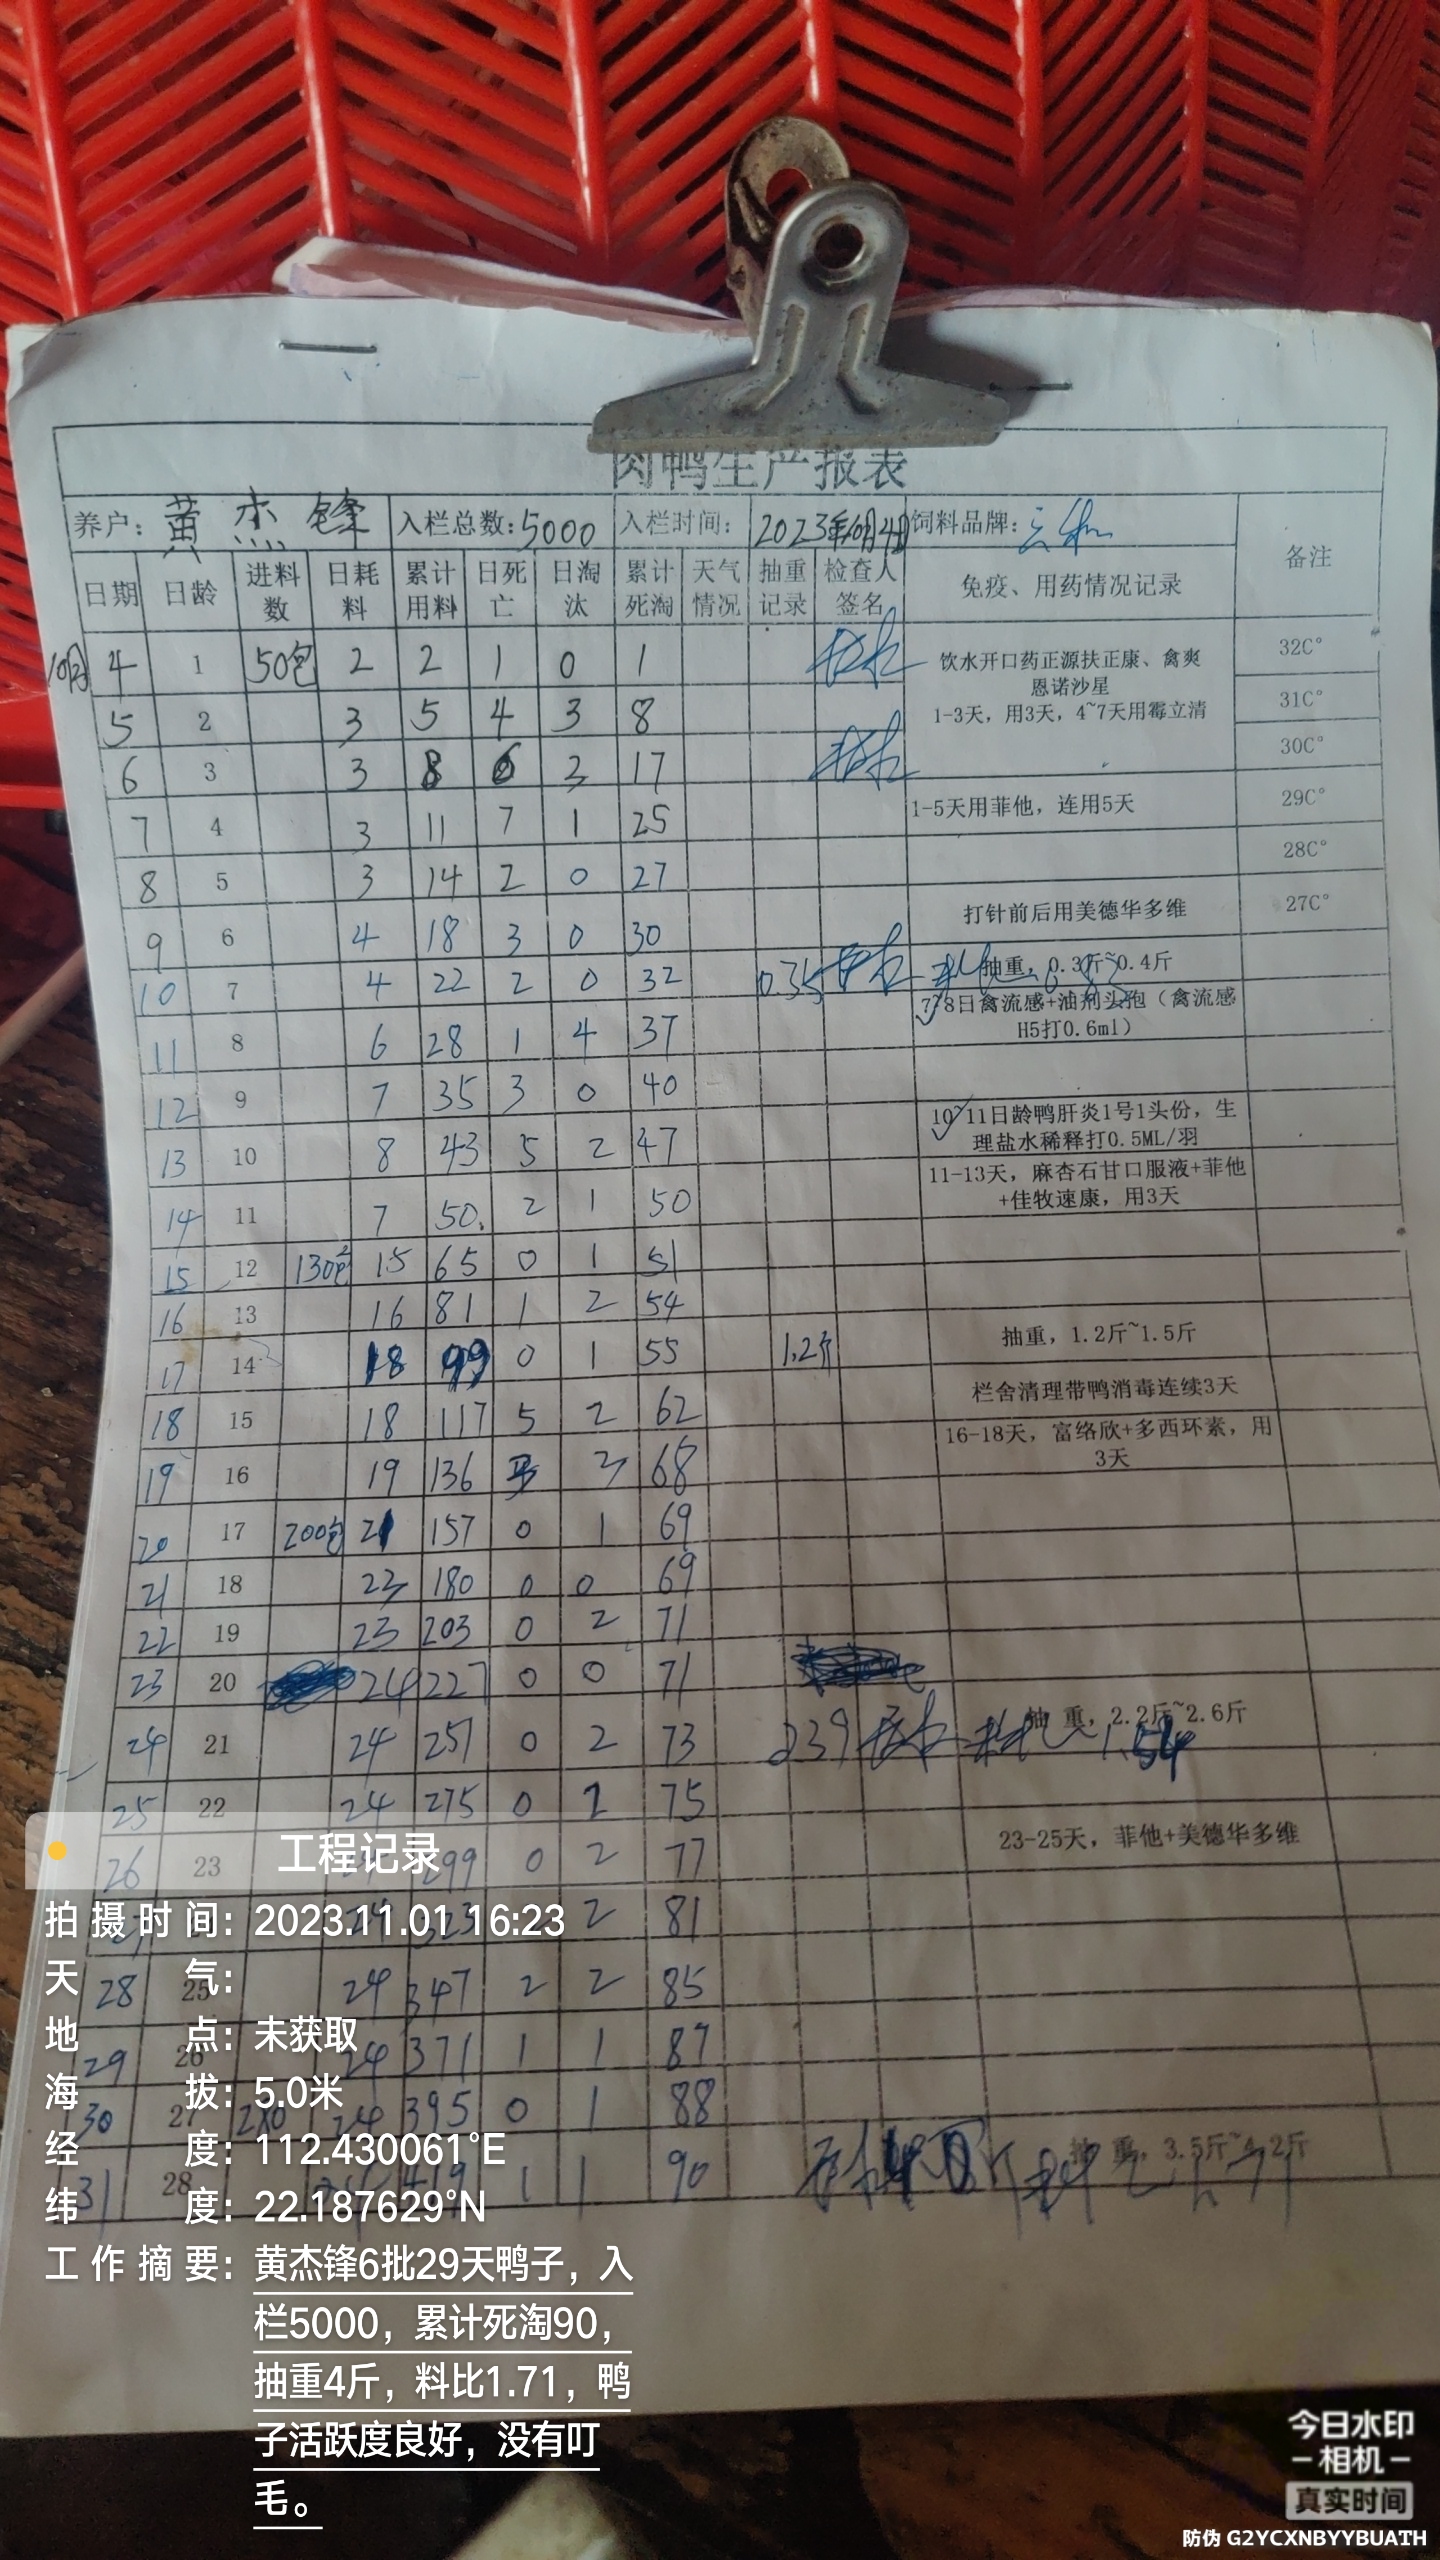 肉鸭生产报表
养户：黄杰锋 入栏总数：5000 入栏时间：2023年10月4日 饲料品牌： 备注
日期 日龄 进料数 日耗料 累计用料 日死亡 日淘汰 累计死淘 天气情况 抽重记录 检查人签名 免疫、用药情况记录
10月4 1 50包 2 2 1 0 1 饮水开口药正源扶正康、禽爽 32C°
恩诺沙星
5 2 3 5 4 3 8 1-3天，用3天，4~7天用霉立清 31C°
6 3 3 8 6 3 17 30C°
7 4 3 11 7 1 25 1-5天用菲他，连用5天 29C°
8 5 3 14 2 0 27 28C°
9 6 4 18 3 0 30 打针前后用美德华多维 27C°
10 7 4 22 2 0 32 0.35 抽重，0.3斤~0.4斤
11 8 6 28 1 4 37 7-8日禽流感+油剂头孢（禽流感
H5打0.6ml）
12 9 7 35 3 0 40
13 10 8 43 5 2 47 10-11日龄鸭肝炎1号1头份，生
理盐水稀释打0.5ML/羽
14 11 7 50 2 1 50 11-13天，麻杏石甘口服液+菲他
+佳牧速康，用3天
15 12 130包 15 65 0 1 51
16 13 16 81 1 2 54
17 14 18 99 0 1 55 1.2斤 抽重，1.2斤~1.5斤
18 15 18 117 5 2 62 栏舍清理带鸭消毒连续3天
19 16 19 136 3 3 68 16-18天，富络欣+多西环素，用
3天
20 17 200包 21 157 0 1 69
21 18 23 180 0 0 69
22 19 23 203 0 2 71
23 20 24 227 0 0 71
24 21 24 251 0 2 73 2.39 抽重，2.2斤~2.6斤 料比1.54
25 22 24 275 0 2 75
26 23 299 0 2 77 23-25天，菲他+美德华多维
24 323 2 81
28 25 24 347 2 2 85
29 26 24 371 1 1 87
30 27 280 24 395 0 1 88
31 28 419 1 1 90 抽重，3.5斤~4.2斤
工程记录
拍摄时间：2023.11.01 16:23
天气：
地点：未获取
海拔：5.0米
经度：112.430061°E
纬度：22.187629°N
工作摘要：黄杰锋6批29天鸭子，入
栏5000，累计死淘90，
抽重4斤，料比1.71，鸭
子活跃度良好，没有叮
毛。
今日水印
相机
真实时间
防伪 G2YCXNBYYBUATH